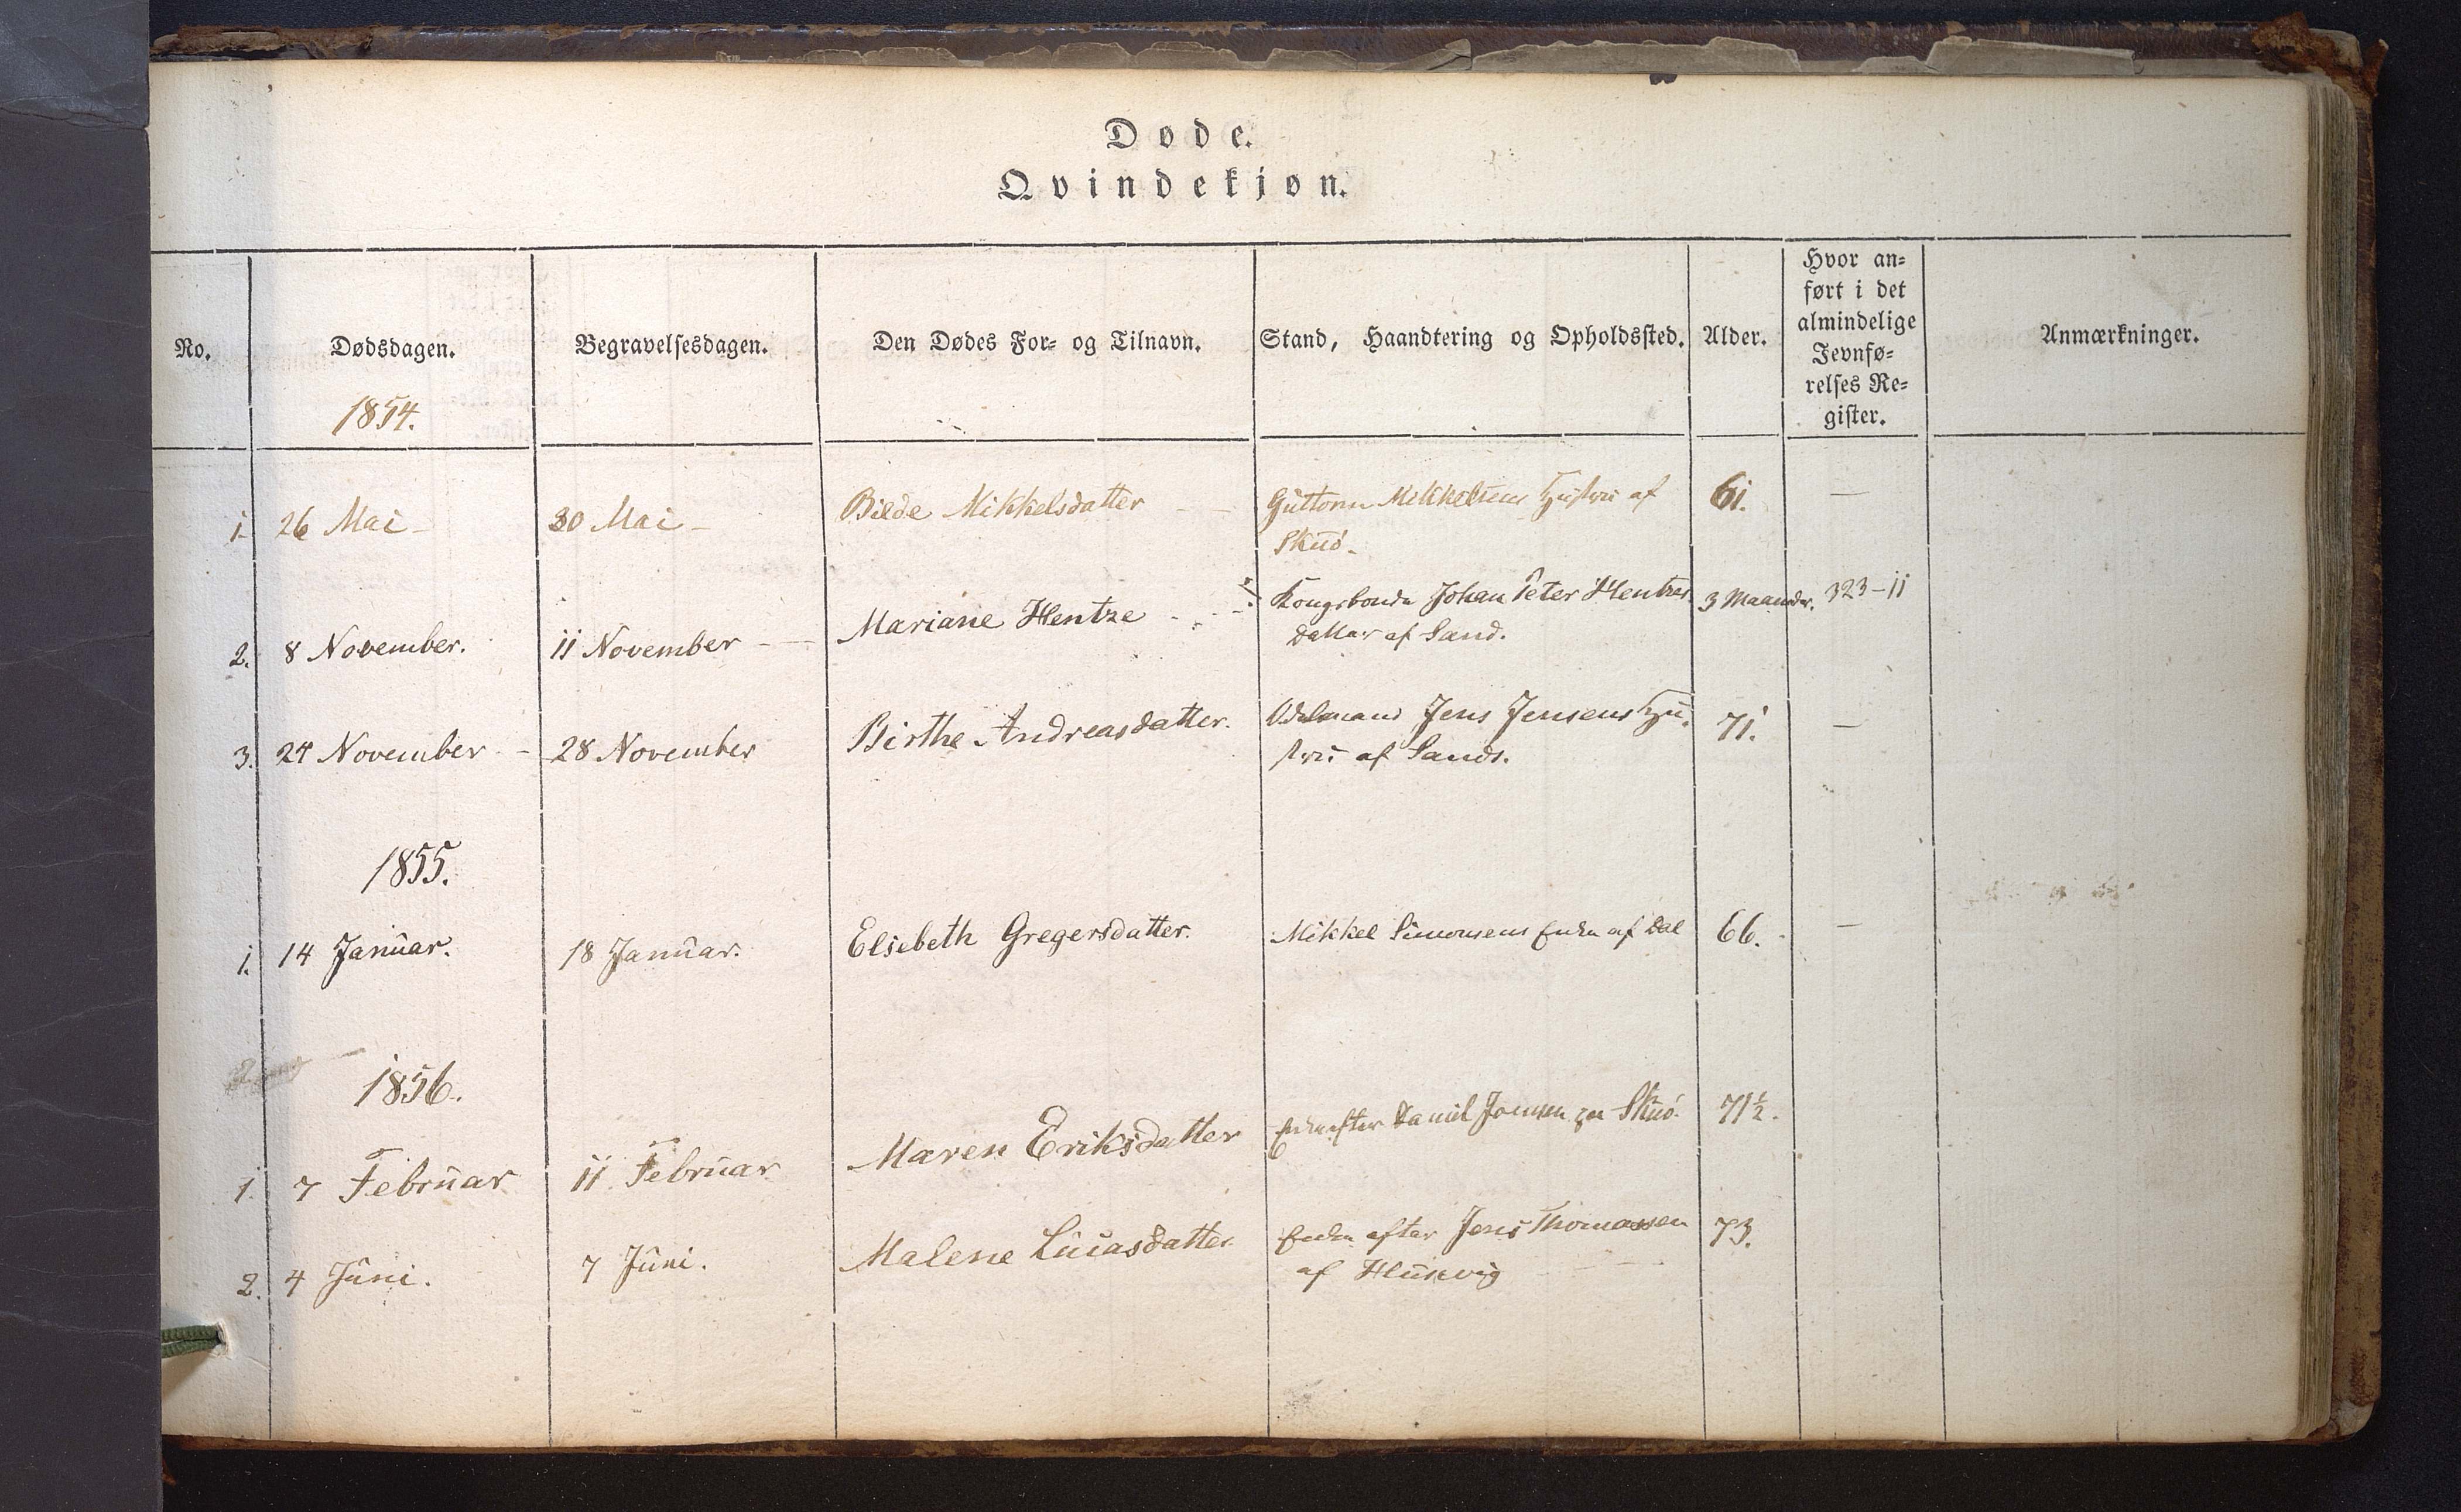 Døde.
Qvindekjøn.
No.
Dødsdagen.
Begravelsesdagen.
Den Dødes For- og Tilnavn.
Stand, Haandtering og Opholdssted.
Alder.
Hvor an-
ført i det
almindelige
Jevnfø-
relses Re-
gister.
Anmærkninger.
1854.
1. 26 Mai - 30 Mai - Bilde Mikkelsdatter - - Guttorm Mikkelsens Hustru af 61. -
Skuö.
2. 8 November. 11 November - Mariane Hentze - - Kongsbonde Johan Peter Hentzes 3 Maaneder. 323-11
Datter af Sand.
3. 24 November - 28 November Birthe Andreasdatter. Odelsmand Jens Jensens Hu- 71. -
stru af Sands.
1855.
1. 14 Januar. 18 Januar. Elsebeth Gregersdatter. Mikkel Simonsens Enke af Dal 66. -
1856.
1. 7 Februar 11 Februar Maren Eriksdatter Enke efter Daniel Joensen paa Skuö. 71½.
2. 4 Juni. 7 Juni. Malene Lucasdatter Enke efter Jens Thomassen 73.
af Husevig